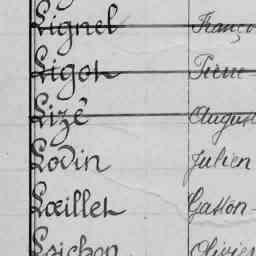 Lignel Franço
Ligot Pierre
Lizé August
Lodin Julien
Lœillet Gaston
Loichon Olivier